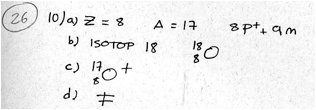 26 10) a) Z = 8 A = 17 8p⁺, 9n
b) ISOTOP 18 ¹⁸₈O
c) ¹⁷₈O +
d) ≠